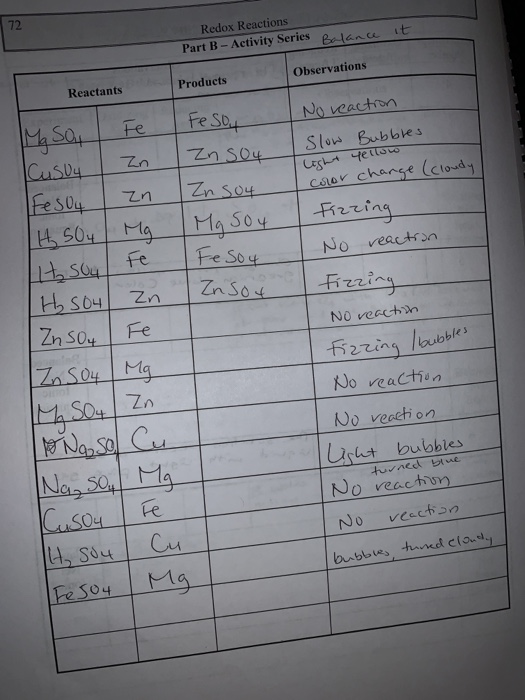 72
Redox Reactions
Part B – Activity Series Balance it
Reactants Products Observations
MgSO4 Fe FeSO4 No reaction
CuSO4 Zn ZnSO4 Slow Bubbles
FeSO4 Zn ZnSO4 Light yellow
color change (cloudy
H2SO4 Mg MgSO4 Fizzing
H2SO4 Fe FeSO4 No reaction
H2SO4 Zn ZnSO4 Fizzing
ZnSO4 Fe No reaction
ZnSO4 Mg Fizzing/bubbles
MgSO4 Zn No reaction
Na2SO4 Cu No reaction
Na2SO4 Mg Light bubbles
turned blue
CuSO4 Fe No reaction
H2SO4 Cu No reaction
FeSO4 Mg bubbles, turned cloudy